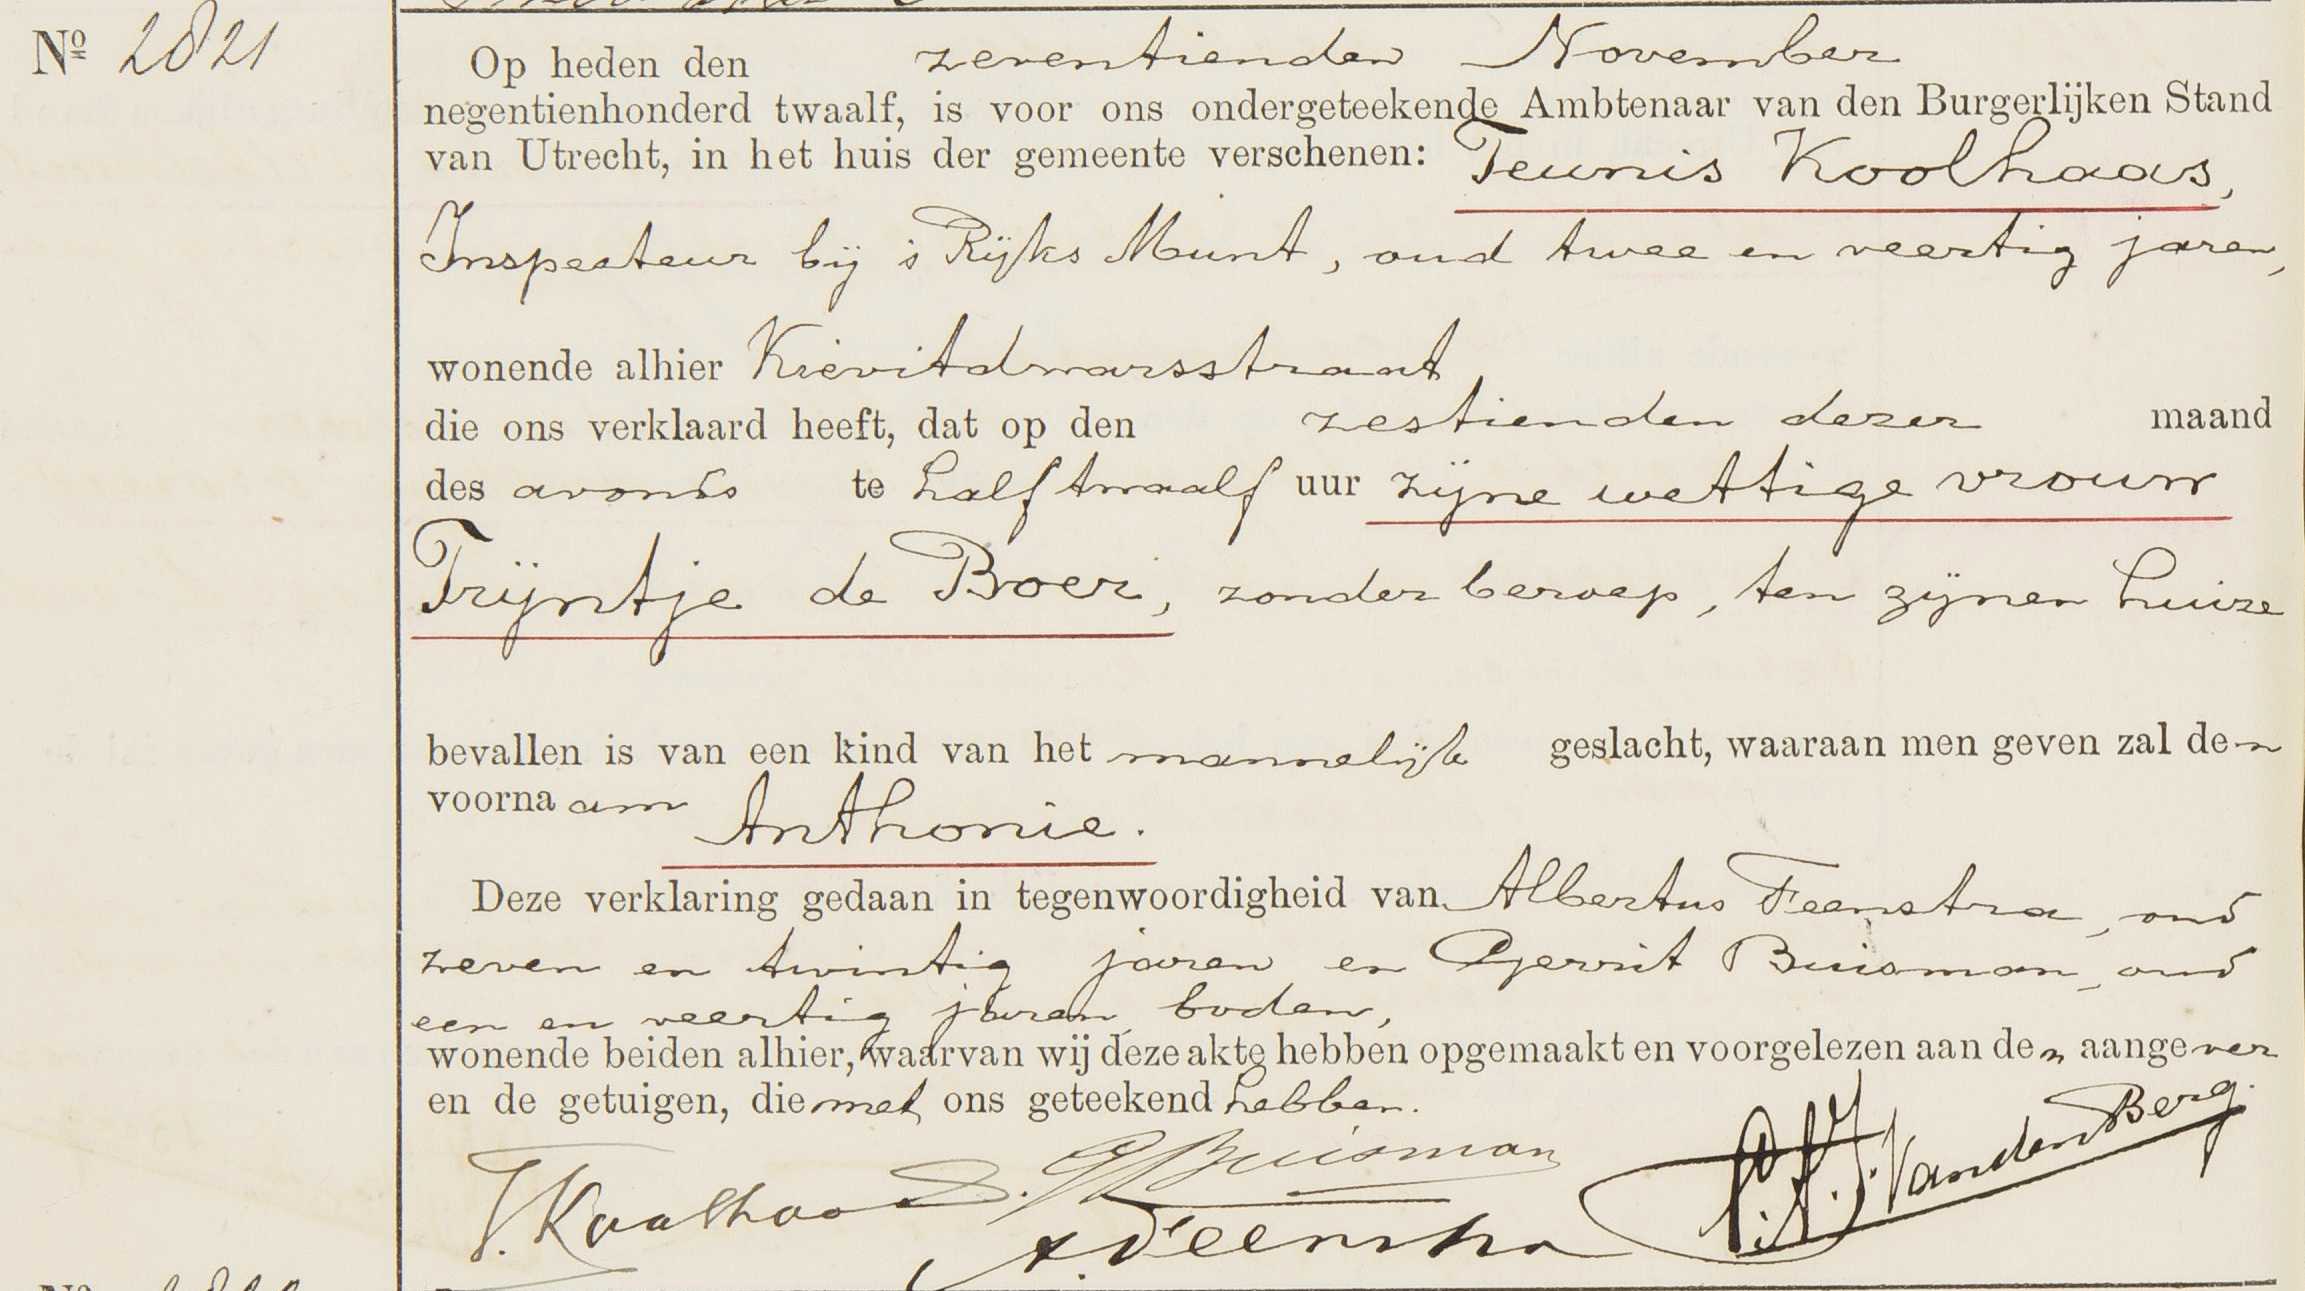 Nº 2821
Op heden den zeventienden November
negentienhonderd twaalf, is voor ons ondergeteekende Ambtenaar van den Burgerlijken Stand
van Utrecht, in het huis der gemeente verschenen: Teunis Koolhaas,
Inspecteur bij 's Rijks Munt, oud twee en veertig jaren,
wonende alhier Kievitdwarsstraat
die ons verklaard heeft, dat op den zestienden dezer maand
des avonds te half twaalf uur zijne wettige vrouw
Trijntje de Boer, zonder beroep, ten zijnen huize
bevallen is van een kind van het mannelijk geslacht, waaraan men geven zal den
voornaam Anthonie.
Deze verklaring gedaan in tegenwoordigheid van Albertus Feenstra, oud
zeven en twintig jaren en Gerrit Buisman, oud
een en veertig jaren, boden,
wonende beiden alhier, waarvan wij deze akte hebben opgemaakt en voorgelezen aan den aangever
en de getuigen, die met ons geteekend hebben.
T. Koolhaas. G Buisman
A. Feenstra
J. VandenBerg.